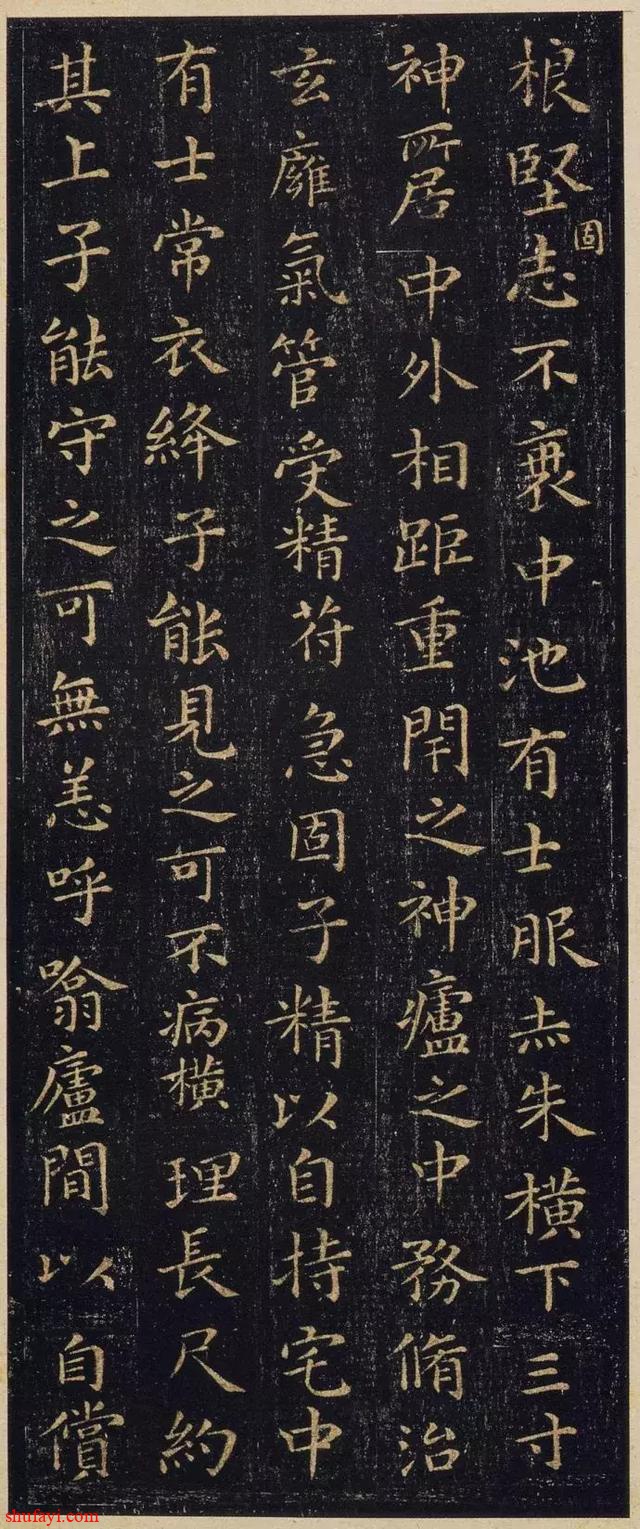 根堅固志不衰中池有士服赤朱橫下三寸
神所居中外相距重閇之神廬之中務脩治
玄廱氣管受精苻急固子精以自持宅中
有士常衣絳子能見之可不病橫理長尺約
其上子能守之可無恙呼噏廬間以自償
shufayi.com